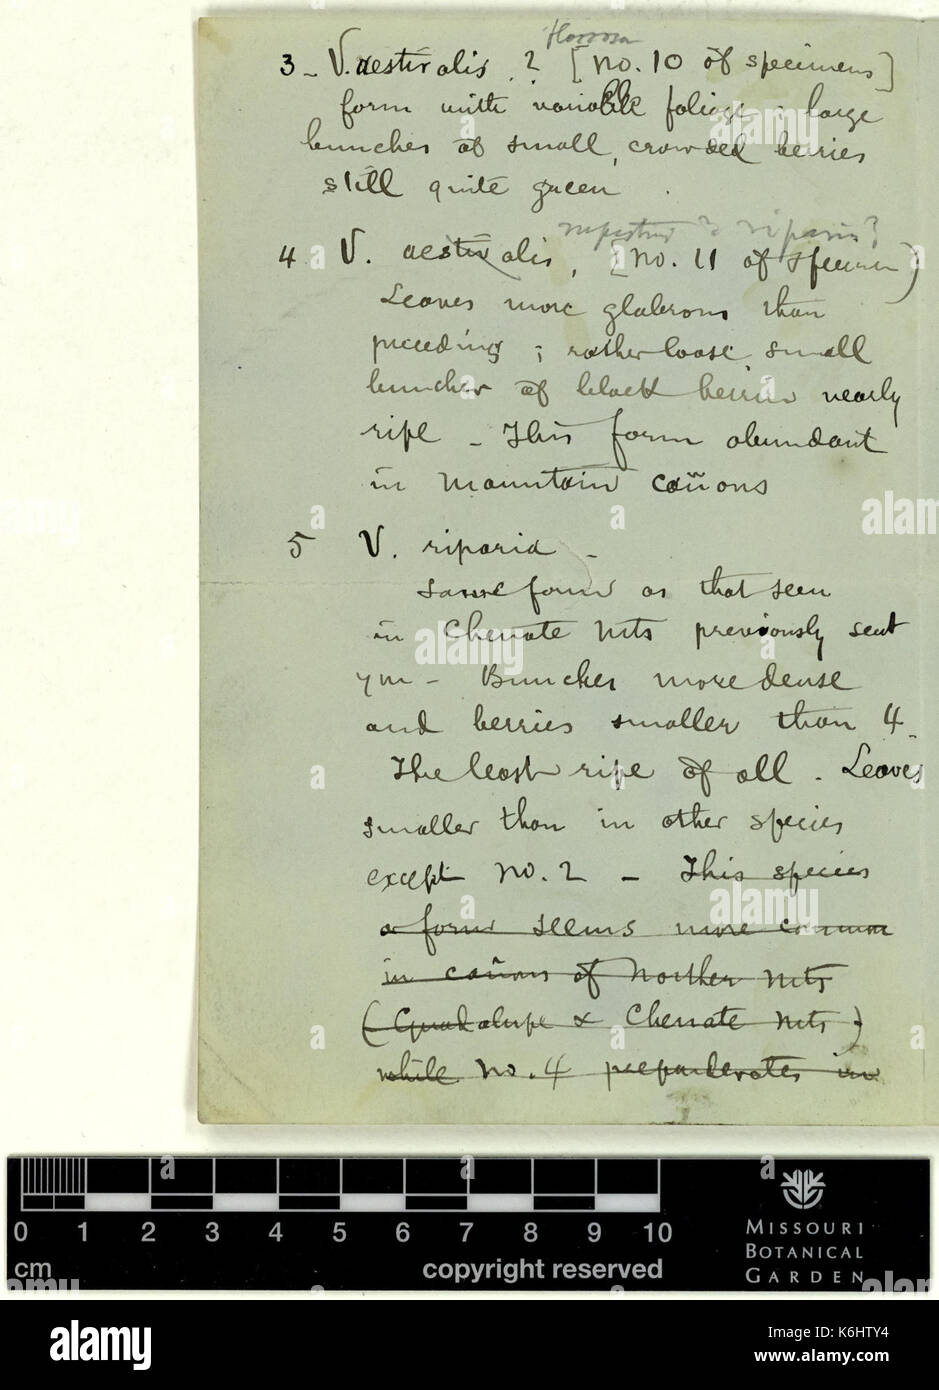 3 - V. aestivalis ? [No. 10 of specimens]
form with variable foliage; large
bunches of small, crowded berries
still quite green.
riparia?
4 V. aestivalis, [No. 11 of specimen]
Leaves more glabrous than
preceeding; rather loose small
bunches of black berries nearly
ripe - This form abundant
in Mountain cañons
5 V. riparia -
same form as that seen
in Chenate Mts previously sent
you - Bunches more dense
and berries smaller than 4.
The least ripe of all. Leaves
smaller than in other species
except No. 2 - This species
a form seems more common
in cañons of Norther Mts
(Guadalupe & Chenate Mts)
while No. 4 preponderates in
0 1 2 3 4 5 6 7 8 9 10
cm
copyright reserved
MISSOURI
BOTANICAL
GARDEN
alamy
Image ID: K6HTY4
www.alamy.com